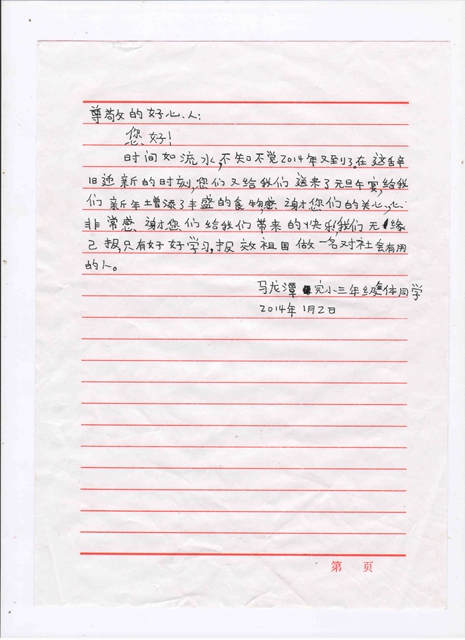 尊敬的好心人:
您好!
时间如流水,不知不觉2014年又到了,在这辞
旧迎新的时刻,您们又给我们送来了元旦午宴,给我
们新年增添了丰盛的食物,感谢您们的关心,
非常感谢您们给我们带来的快乐,我们无缘
己报,只有好好学习,报效祖国做一名对社会有用
的人。
马龙潭完小三年级体同学
2014年1月2日
第 页